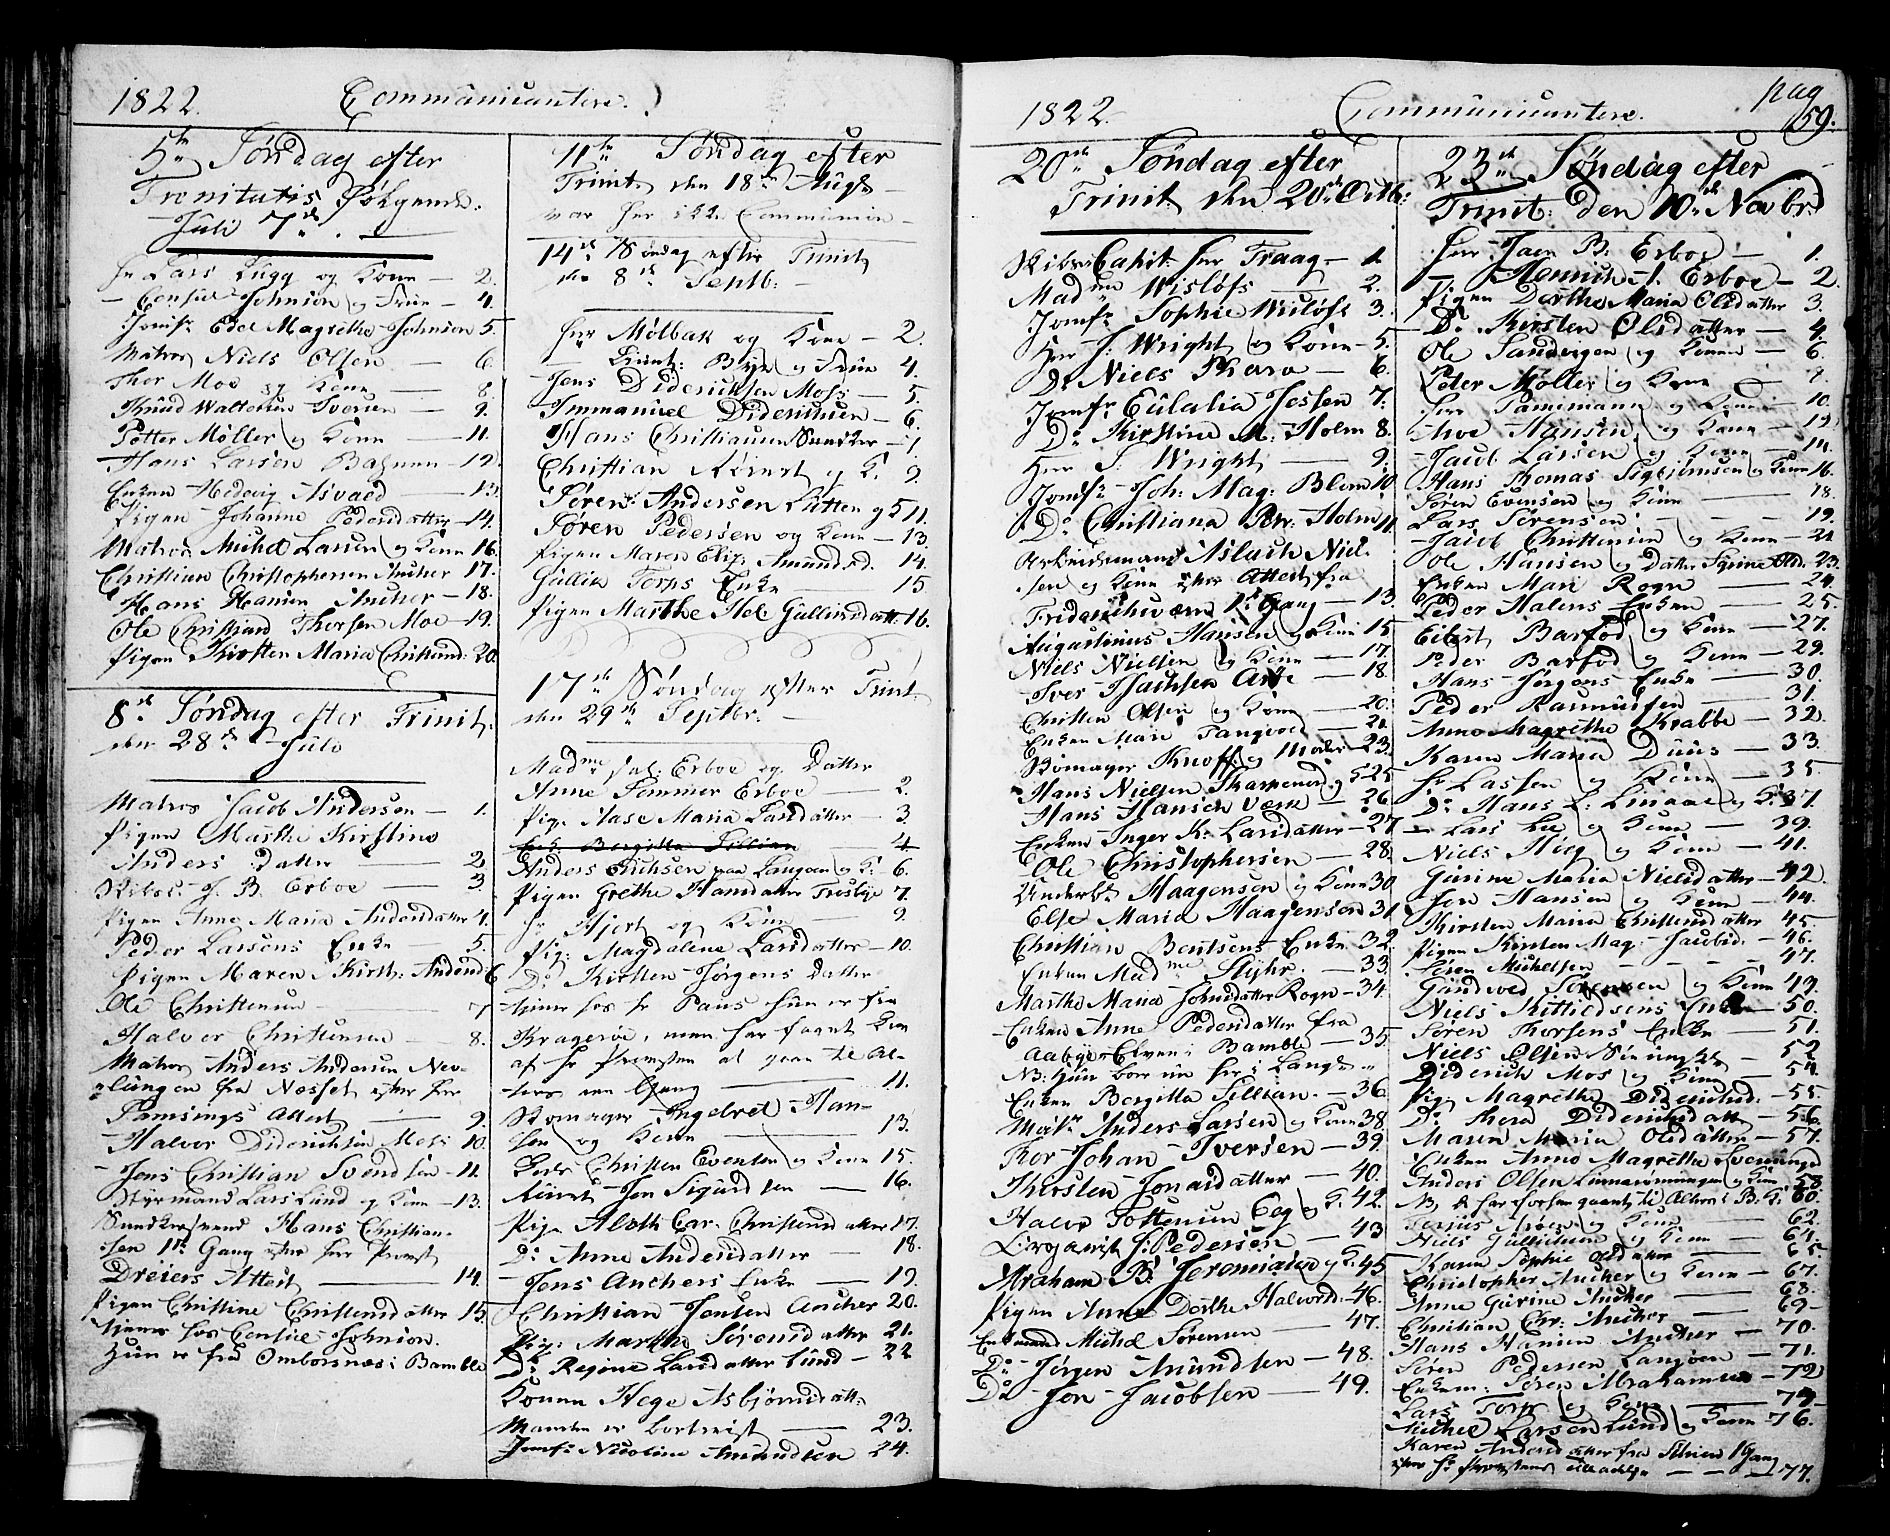 1822. Communicantere.
5te Søndag efter
Trinitatis Følgende
Juli 7de
Hr Lars Lugg og Kone — 2.
— Consul Johnson og Frue — 4.
Jomfr Edel Magrethe Johnson 5.
Matros Niels Olsen — 6.
Thor Moe og Kone — 8.
Knud Waltersen Iversen — 9.
Petter Møller og Kone — 11.
Hans Larsen — 12.
Enken Hedevig Asvald — 13.
Pigen Johanne Pedersdatter — 14.
Matros Michel Larsen og Kone 16.
Christian Christophersen Ancher 17.
Hans Hansen Ancher — 18.
Ole Christian Thorsen Moe — 19.
Pigen Kirsten Maria Christensd: 20.
8de Søndag efter Trinit:
den 28de Juli
Matros Jacob Andersen — 1.
Pigen Marthe Kirstine
Anders datter — 2.
J. B. Erboe — 3.
Pigen Anne Maria Andersdatter 4.
Peder Larsens Enke — 5.
Pigen Maren Kirst: Andersd: 6
Ole Christensen — 7
Halvor Christensen — 8.
Matros Anders Andersen
fra Næsset efter Herr
Attest — 9.
Halvor Dideriksen Moss 10.
Jens Christian Svendsen — 11.
Styrmand Lars Lund og Kone — 13.
Hans Christian-
sen 1te Gang efter Herr Provst
Dreiers Attest — 14.
Pigen Christine Christensdatter 15.
tjener hos Consul Johnson.
Hun er fra Omborsnæs i Bamble
11te Søndag efter
Trinit: den 18de Augst
var her ikke Communion
14de Søndag efter Trinit
den 8de Septb:
Herr Mølbak og Kone — 2.
Lieut: og Frue 4.
Jens Dideriksen Moss — 5.
Immanuel Dideriksen — 6.
Hans Christiansen — 7.
Christian og K. 9.
Søren Andersen og K 11.
Søren Pedersen og Kone — 13.
Pigen Maren Elis: Amunds.d. 14.
Gullik Torps Enke — 15
Pigen Marthe Gullichsdatt: 16.
17de Søndag efter Trinit
den 29de Septbr:
Madme sal: Erboe og Datter
Anne Sommer Erboe — 2.
Pig: Aase Maria Larsdatter — 3.
Enk: Bergitte Sillian — 4
Anders Erichsen paa Langøen og K: 6.
Pigen Grethe Hansdatter 7.
Hr Hjort og Kone — 9.
Pig: Magdalene Larsdatter — 10.
Do Kirsten Jørgens datter
tjener hos Hr Paus hun er fra
Kragerøe, men har faaet Lov
af Hr Provsten at gaae til Al-
ters een Gang — 11.
Skomager Ingebret Han-
sen og Kone — 13.
Christen Evensen og Kone 15
Jon Sigurdsen — 16.
Pige Aleth Car. Christensdatter 17.
Do Anne Andersdatter 18.
Jens Anchers Enke — 19.
Christian Jensen Ancher 20.
Pig: Marthe Sørensdatter 21.
Do Regine Larsdatter Lund — 22
Konen Hege Asbjørnsdatt:
Manden er bortreist — 23.
Jomfr Nicoline Amundsen 24.
1822. Communicantere. pag
59.
20de Søndag efter
Trinit: den 20de Octb:
Capit: Herr Traag — 1.
Madme Wisløfs — 2.
Jomfr Sophie Wisløfs 3.
Herr J. Wright og Kone — 5.
Do Niels — 6.
Jomfr Eulalia Jessen 7.
Do Kirstine M: Holm 8.
Herr S. Wright — 9.
Jomfr Joh: Mag: Blom 10.
Do Christiana Petr: Holm 11.
Arbeidsmand Aslach Niel-
sen og Kone efter Attest fra
1te Gang — 13.
Augustinus Hansen og Kone 15
Niels Nielsen og Kone — 17.
Iver Isachsen — 18.
Christen Olsen og Kone — 20.
Enken Mari Tangvold — 21.
Skomager Knoff og Moder — 23.
Hans Nielsen og K 25
Hans Hansen — 26.
Enken Inger K: Larsdatter — 27
Ole Christophersen — 28.
Haagensen og Kone 30
Else Maria Haagensen 31.
Christian Bentsens Enke 32.
Enken Madme Styhr — 33.
Marthe Maria Johnsdatter Rogn — 34.
Enken Anne Pedersdatter fra
Aabye-Elven i Bamble — 35
NB: Hun bor nu her i Lang:
Enken Bergitta Sillian — 36.
Anders Larsen og Kone 38
Tor Johan Iversen — 39.
Thorsten Jonasdatter — 40.
Halvor Tostensen Eeg og K. 42.
Organist J: Pedersen — 43
Abraham B: Jeremiasen og K. 45.
Pigen Anne Dorthe Halvorsd: 46.
Michel Sørensen — 47.
Do Jørgen Amundsen — 48.
Do Jon Jacobsen — 49.
23de Søndag efter
Trinit: den 10de Novbr:
Herr Jacob B: Erboe — 1.
— Henrich J. Erboe — 2.
Pigen Dorthe Maria Olsdatter 3.
Do Kirsten Olsdatter — 4.
Ole Sandvigen og Kone — 6.
Peter Møller og Kone — 8.
Herr og Kone — 10.
Hansen og Kone — 12.
Jacob Larsen og Kone — 14.
Hans Thomas og Kone 16.
Søren Evensen og Kone — 18.
Lars Sørensen — 19.
Jacob Christensen og Kone — 21
Ole Hansen og Datter Olsd. 23.
Enken Mari Rogn — 24.
Peder Halens Enken — 25.
Eilert Barfod og Kone — 27.
Peder Barfod og Kone — 29.
Hans Jørgens Enke — 30.
Peder Rasmussen — 31.
Anne Magrethe Krabbe — 32.
Karen Maria Duus — 33.
Hr Lassen og Kone — 35.
Do Hans L: Linaae og K: 37.
Lars Lie og Kone — 39.
Niels og Kone — 41.
Gurine Maria Nielsdatter — 42.
Jon Hansen og Kone — 44.
Kirsten Maria Christensdatter 45
Pigen Kirsten Mag: Jacobsd. — 46.
Søren Michelsen — 47.
Gundved Sørensen og Kone 49.
Niels Kittilsens Enke — 50.
Søren Thorsens Enke — 51.
Niels Olsen — 52
Diderich Mos og Kone — 54.
Pige Magrethe Diderichsd: — 55.
Do Thora Diderichsdatt: — 56.
Maren Maria Olsdatter — 57.
Enken Anne Magrethe
Anders Olsen og Kone 58
60.
og Kone — 62.
Niels Gullichsen og Kone — 64.
Karen Sophie Olsdatter — 65
Christopher Ancher og Kone — 67.
Anne Gurine Ancher — 68.
Christian Chr: Ancher — 69.
Hans Hansen Ancher — 70.
Søren Pedersen Langøen — 71.
Enkem: Søren Abrahamsen — 72
Lars Torp og Kone — 74.
Michel Larsen Lund og Kone — 76.
Karen Andersdatter fra 1 Gang
efter Hr Provstens — 77.